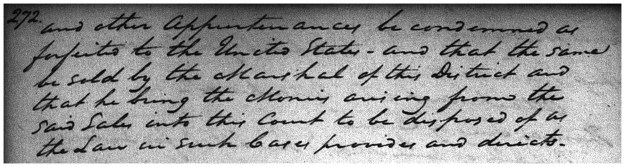 272.
and other Appurtenances be condemned as
forfeited to the United States - and that the same
be sold by the Marshal of this District and
that he bring the Monies arising from the
said Sales into this Court to be disposed of as
the Law in such Cases provides and directs.